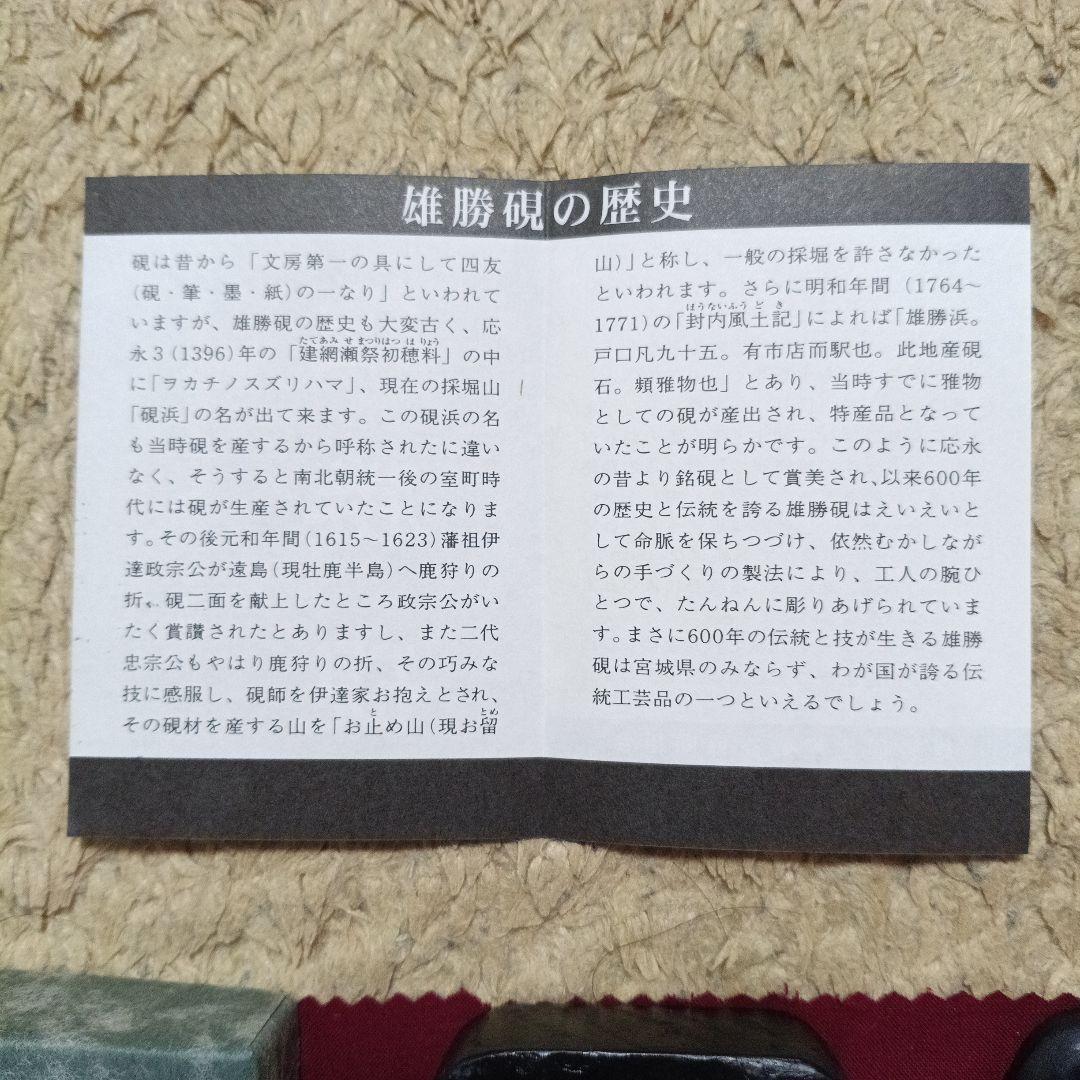 雄勝硯の歴史
硯は昔から「文房第一の具にして四友
(硯・筆・墨・紙)の一なり」といわれて
いますが、雄勝硯の歴史も大変古く、応
たてあみせまつりはつほりょう
永3(1396)年の「建網瀬祭初穂料」の中
に「ヲカチノスズリハマ」、現在の採堀山
「硯浜」の名が出て来ます。この硯浜の名
も当時硯を産するから呼称されたに違い
なく、そうすると南北朝統一後の室町時
代には硯が生産されていたことになりま
す。その後元和年間(1615〜1623)藩祖伊
達政宗公が遠島(現牡鹿半島)へ鹿狩りの
折、硯二面を献上したところ政宗公がい
たく賞讃されたとありますし、また二代
忠宗公もやはり鹿狩りの折、その巧みな
技に感服し、硯師を伊達家お抱えとされ、
と とめ
その硯材を産する山を「お止め山(現お留
山)」と称し、一般の採堀を許さなかった
といわれます。さらに明和年間(1764〜
ほうないふうどき
1771)の「封内風土記」によれば「雄勝浜。
戸口凡九十五。有市店而駅也。此地産硯
石。頻雅物也」とあり、当時すでに雅物
としての硯が産出され、特産品となって
いたことが明らかです。このように応永
の昔より銘硯として賞美され、以来600年
の歴史と伝統を誇る雄勝硯はえいえいと
して命脈を保ちつづけ、依然むかしなが
らの手づくりの製法により、工人の腕ひ
とつで、たんねんに彫りあげられていま
す。まさに600年の伝統と技が生きる雄勝
硯は宮城県のみならず、わが国が誇る伝
統工芸品の一つといえるでしょう。